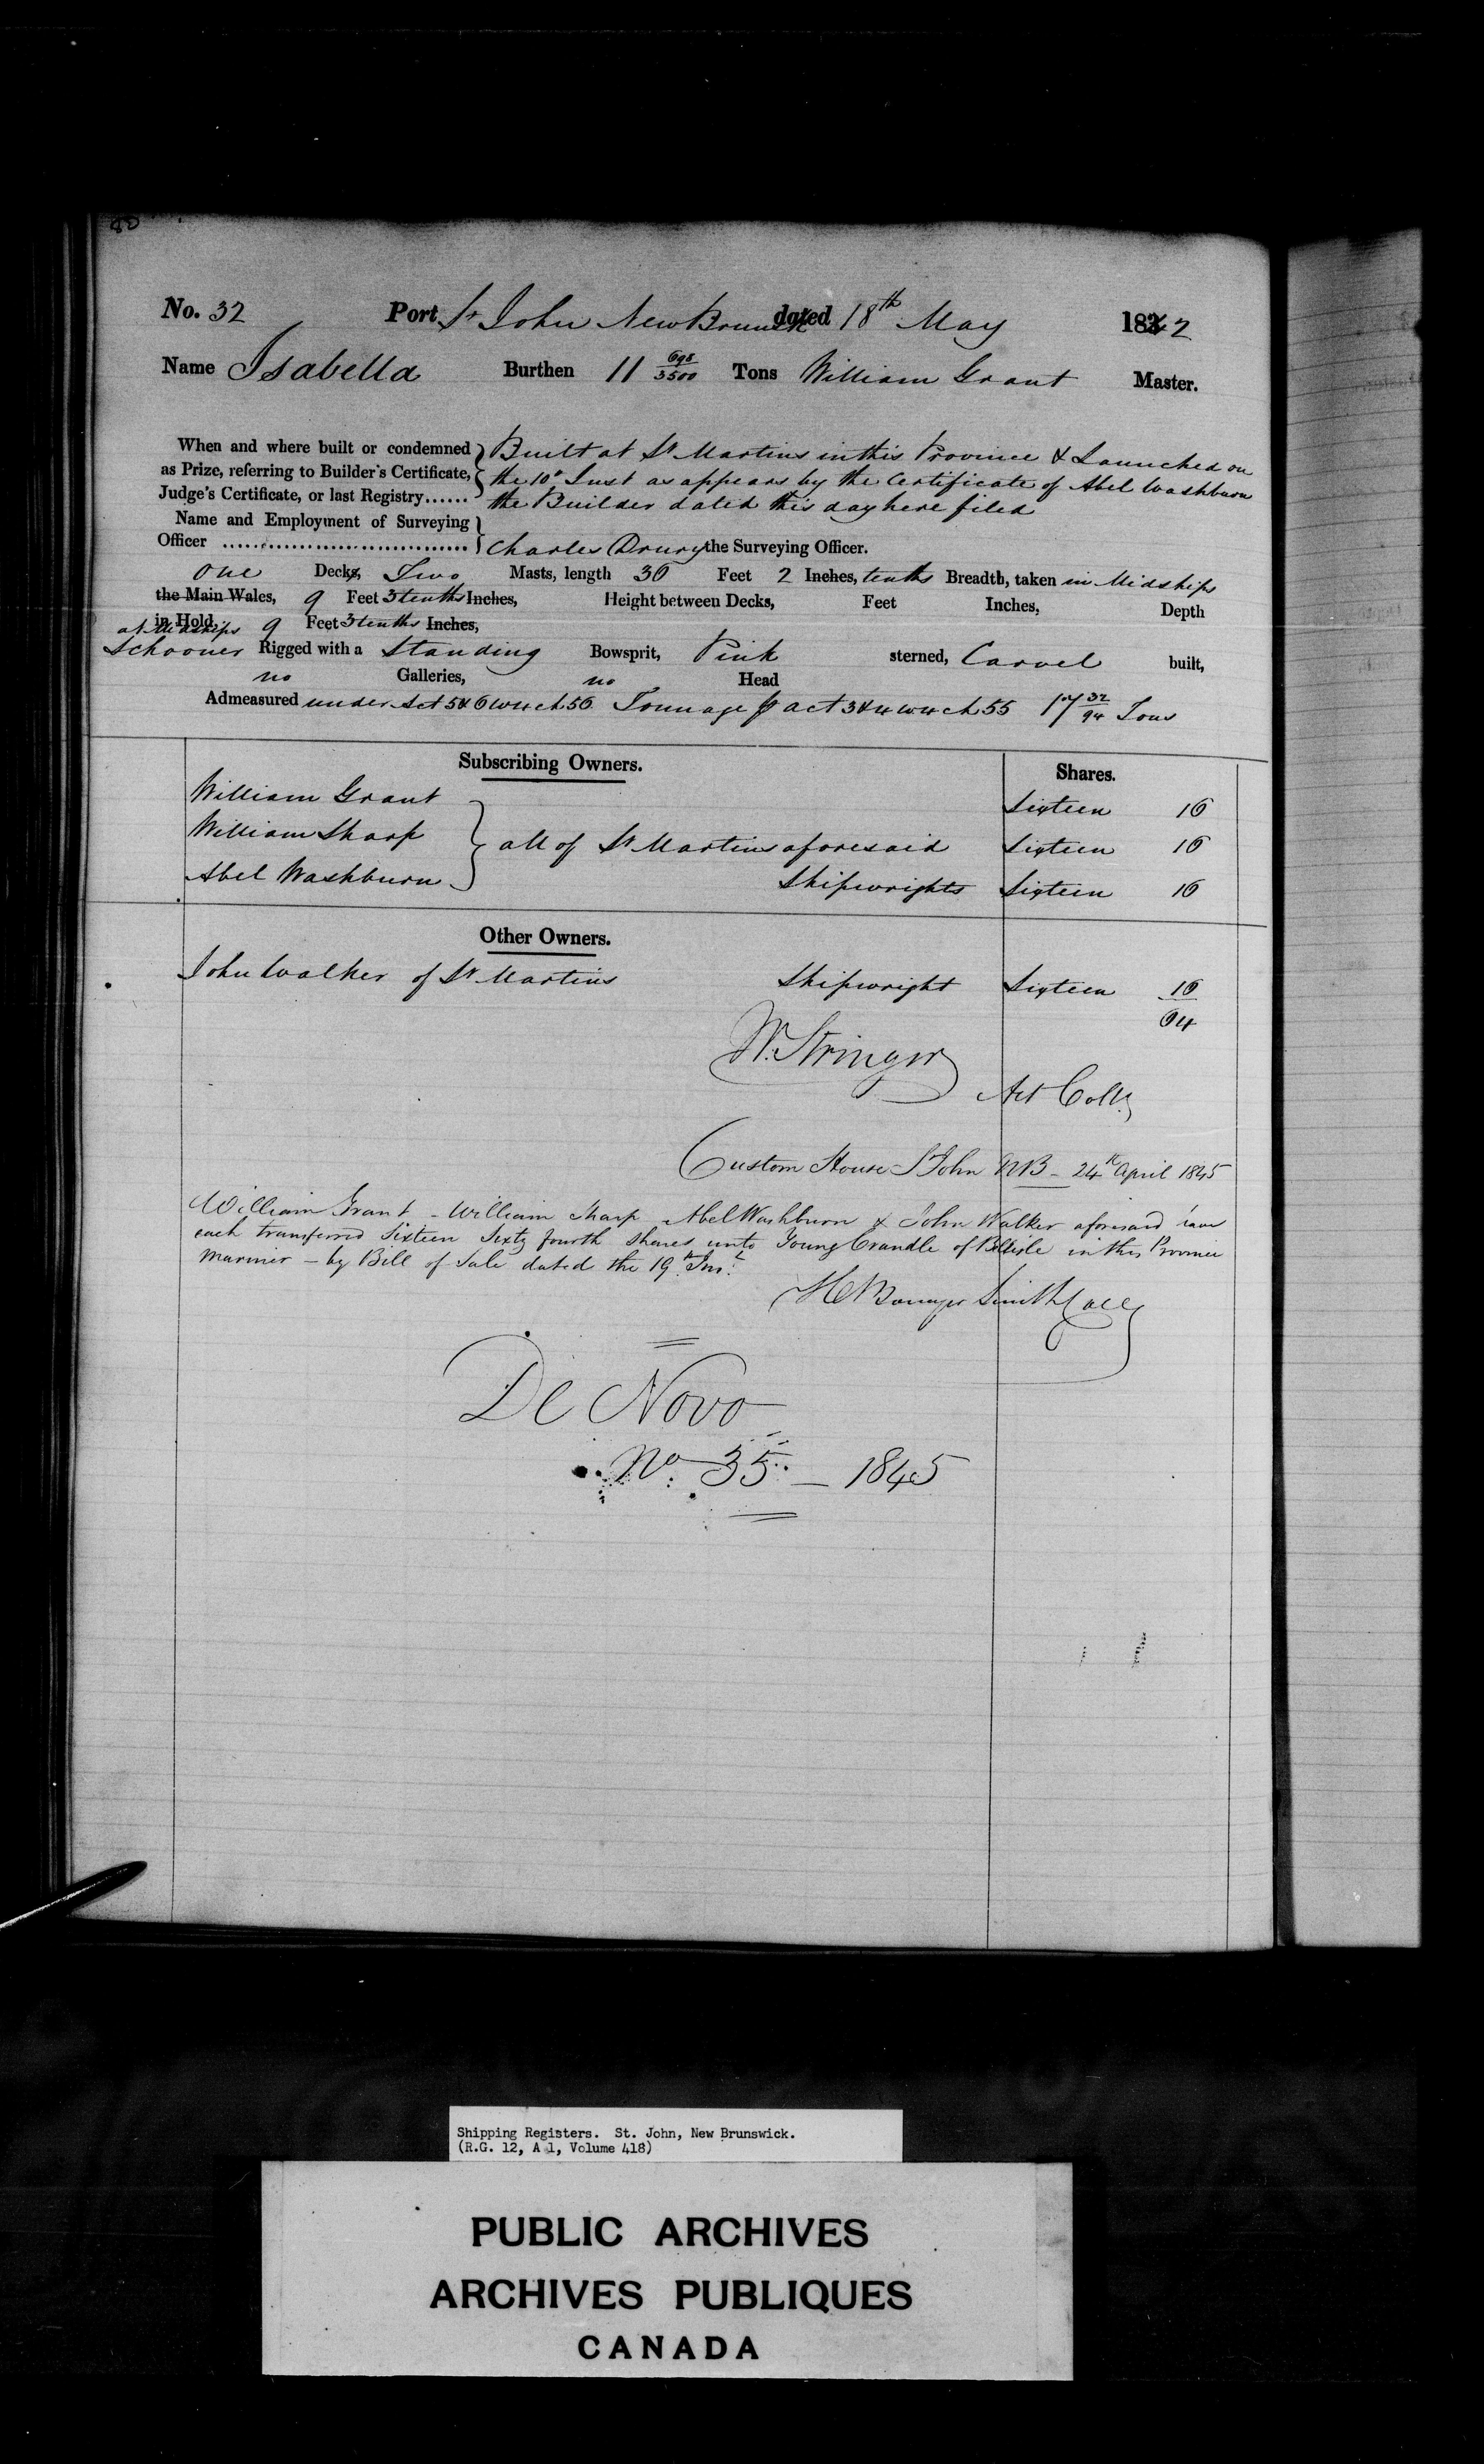 40
No. 32 Port St John New Brunswk dated 18th May 1842
Name Isabella Burthen 11 698/3500 Tons William Grant Master.
When and where built or condemned as Prize, referring to Builder's Certificate, Judge's Certificate, or last Registry......
Built at St Martins in this Province & Launched on
the 10th Inst as appears by the Certificate of Abel Washburn
the Builder dated this day here filed
Name and Employment of Surveying
Officer ................................ Charles Drury the Surveying Officer.
One Decks, Two Masts, length 30 Feet 2 Inches, tenths Breadth, taken in Midships
the Main Wales, 9 Feet 3 tenths Inches, Height between Decks, Feet Inches, Depth
in Hold, at Midships 9 Feet 3 tenths Inches,
Schooner Rigged with a Standing Bowsprit, Pink sterned, Carvel built,
no Galleries, no Head
Admeasured under Act 5 & 6 W 4 ch 56 Tonnage p Act 3 & 4 W 4 ch 55 17 32/94 Tons
Subscribing Owners. Shares.
William Grant Sixteen 16
William Sharp all of St Martins aforesaid Sixteen 16
Abel Washburn Shipwrights Sixteen 16
Other Owners.
John Walker of St Martins Shipwright Sixteen 16
64
W. Stringer
Act Collr
Custom House St John NB - 24th April 1845
William Grant - William Sharp Abel Washburn & John Walker aforesaid have
each transferred Sixteen Sixty fourth Shares unto Young Crandle of Bellisle in this Province
Mariner - by Bill of Sale dated the 19th Inst.
H Bowyer Smith Collr
De Novo
No. 35 - 1845
Shipping Registers. St. John, New Brunswick.
(R.G. 12, A 1, Volume 418)
PUBLIC ARCHIVES
ARCHIVES PUBLIQUES
CANADA